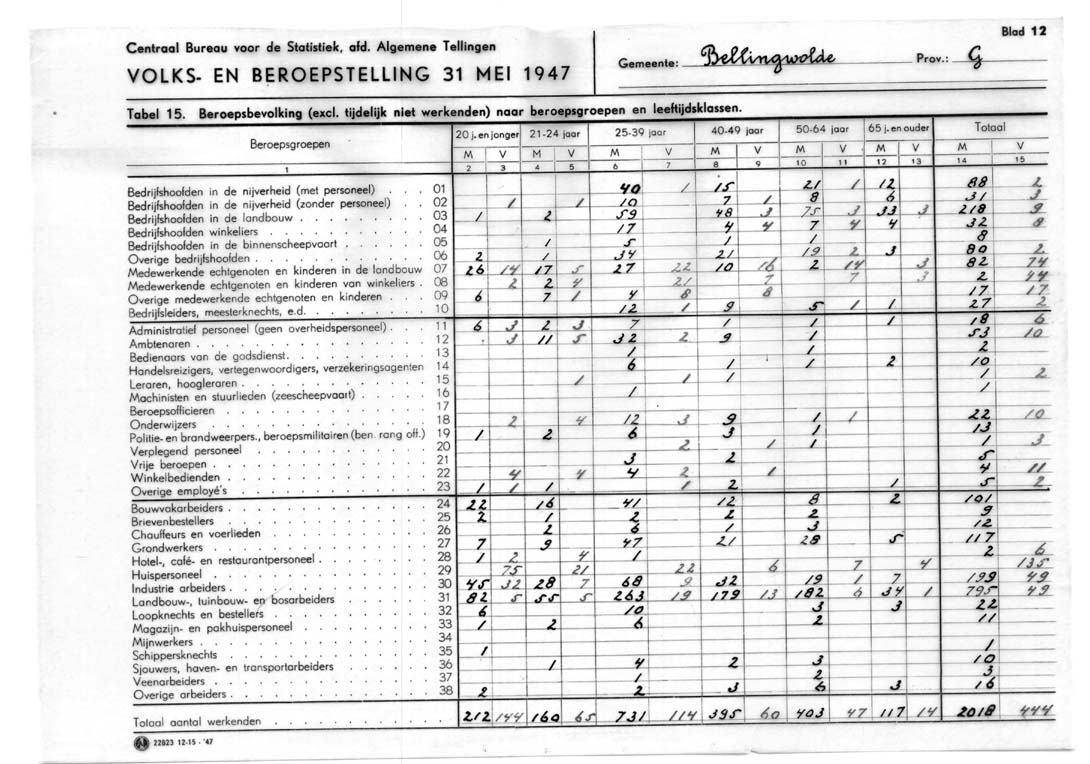 Blad 12
Centraal Bureau voor de Statistiek, afd. Algemene Tellingen
VOLKS- EN BEROEPSTELLING 31 MEI 1947
Gemeente: Bellingwolde Prov.: G
Tabel 15. Beroepsbevolking (excl. tijdelijk niet werkenden) naar beroepsgroepen en leeftijdsklassen.
Beroepsgroepen 20 j. en jonger 21-24 jaar 25-39 jaar 40-49 jaar 50-64 jaar 65 j. en ouder Totaal
M V M V M V M V M V M V M V
1 2 3 4 5 6 7 8 9 10 11 12 13 14 15
Bedrijfshoofden in de nijverheid (met personeel) . . . 01 40 1 15 21 1 12 88 2
Bedrijfshoofden in de nijverheid (zonder personeel) . . 02 1 1 10 7 1 8 6 31 3
Bedrijfshoofden in de landbouw . . . 03 1 2 59 48 3 75 3 33 3 218 9
Bedrijfshoofden winkeliers . . . 04 17 4 4 7 4 4 32 8
Bedrijfshoofden in de binnenscheepvaart . . . 05 1 5 1 1 8
Overige bedrijfshoofden . . . 06 2 1 34 21 19 2 3 80 2
Medewerkende echtgenoten en kinderen in de landbouw 07 26 14 17 5 27 22 10 16 2 14 3 82 74
Medewerkende echtgenoten en kinderen van winkeliers . 08 2 2 4 21 7 7 3 2 44
Overige medewerkende echtgenoten en kinderen . . . 09 6 7 1 4 8 8 17 17
Bedrijfsleiders, meesterknechts, e.d. . . . 10 12 1 9 5 1 1 27 2
Administratief personeel (geen overheidspersoneel) . . . 11 6 3 2 3 7 1 1 1 18 6
Ambtenaren . . . 12 3 11 5 32 2 9 1 53 10
Bedienaars van de godsdienst . . . 13 1 1 2
Handelsreizigers, vertegenwoordigers, verzekeringsagenten 14 6 1 1 2 10
Leraren, hoogleraren . . . 15 1 1 1 1 2
Machinisten en stuurlieden (zeescheepvaart) . . . 16 1 1
Beroepsofficieren . . . 17
Onderwijzers . . . 18 2 4 12 3 9 1 1 22 10
Politie- en brandweerpers., beroepsmilitairen (ben. rang off.) 19 1 2 6 3 1 13
Verplegend personeel . . . 20 2 1 1 1 3
Vrije beroepen . . . 21 3 2 5
Winkelbedienden . . . 22 4 4 4 2 1 4 11
Overige employé's . . . 23 1 1 1 1 2 1 5 2
Bouwvakarbeiders . . . 24 22 16 41 12 8 2 101
Brievenbestellers . . . 25 2 1 2 2 2 9
Chauffeurs en voerlieden . . . 26 2 6 1 3 12
Grondwerkers . . . 27 7 9 47 21 28 5 117
Hotel-, café- en restaurantpersoneel . . . 28 1 2 4 1 2 6
Huispersoneel . . . 29 75 21 22 6 7 4 135
Industrie arbeiders . . . 30 45 32 28 7 68 9 32 19 1 7 199 49
Landbouw-, tuinbouw- en bosarbeiders . . . 31 82 5 55 5 263 19 179 13 182 6 34 1 795 49
Loopknechts en bestellers . . . 32 6 10 3 3 22
Magazijn- en pakhuispersoneel . . . 33 1 2 6 2 11
Mijnwerkers . . . 34
Schippersknechts . . . 35 1 1
Sjouwers, haven- en transportarbeiders . . . 36 1 4 2 3 10
Veenarbeiders . . . 37 1 2 3
Overige arbeiders . . . 38 2 2 3 6 3 16
Totaal aantal werkenden . . . 212 144 160 65 731 114 395 60 403 47 117 14 2018 444
22823 12-15 - '47